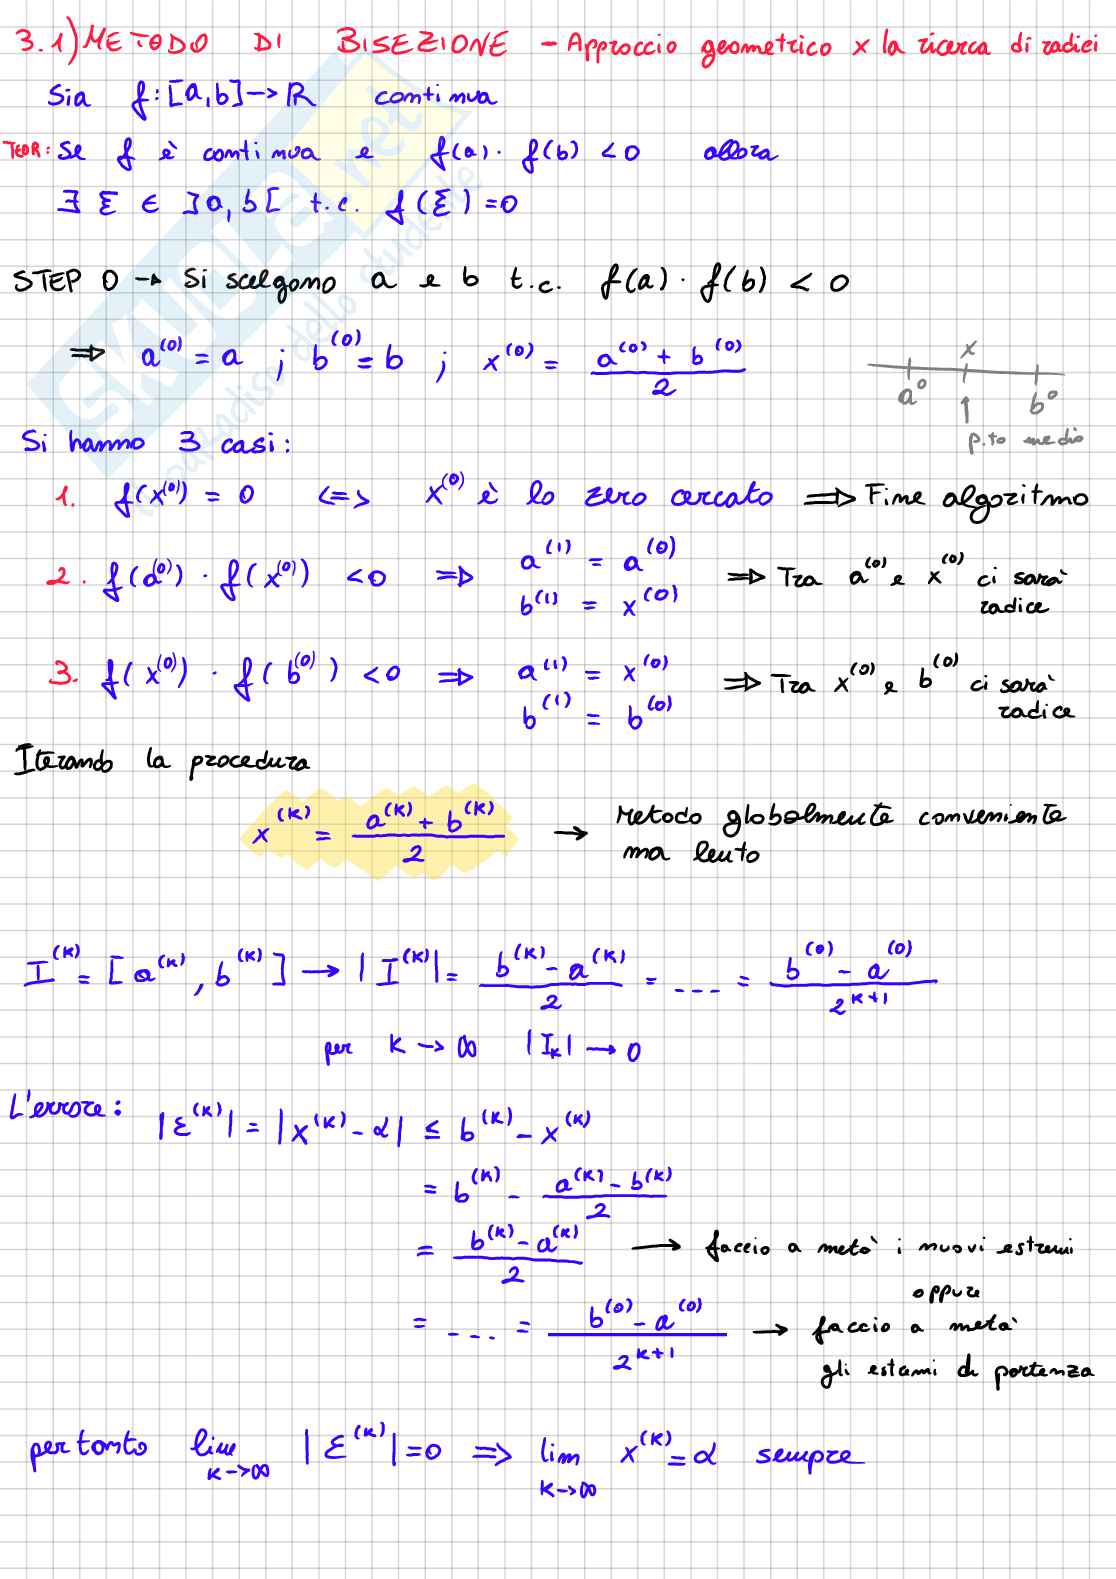 3.1) METODO DI BISEZIONE - Approccio geometrico x la ricerca di radici
Sia f: [a,b] → ℝ continua
TEOR: Se f è continua e f(a) · f(b) < 0 allora
∃ ξ ∈ ]a,b[ t.c. f(ξ) = 0
STEP 0 → Si scelgono a e b t.c. f(a) · f(b) < 0
⇒ a^(0) = a ; b^(0) = b ; x^(0) = (a^(0) + b^(0)) / 2
x
a^0 b^0
p.to medio
Si hanno 3 casi:
1. f(x^(0)) = 0 <=> x^(0) è lo zero cercato ⇒ Fine algoritmo
2. f(a^(0)) · f(x^(0)) < 0 ⇒ a^(1) = a^(0) ⇒ Tra a^(0) e x^(0) ci sarà
b^(1) = x^(0) radice
3. f(x^(0)) · f(b^(0)) < 0 ⇒ a^(1) = x^(0) ⇒ Tra x^(0) e b^(0) ci sarà
b^(1) = b^(0) radice
Iterando la procedura
x^(k) = (a^(k) + b^(k)) / 2 → Metodo globalmente conveniente
ma lento
I^(k) = [a^(k), b^(k)] → |I^(k)| = (b^(k) - a^(k)) / 2 = .... = (b^(0) - a^(0)) / 2^(k+1)
per k → ∞ |I_k| → 0
L'errore: |ε^(k)| = |x^(k) - α| ≤ b^(k) - x^(k)
= b^(k) - (a^(k) - b^(k)) / 2
= (b^(k) - a^(k)) / 2 → faccio a metà i nuovi estremi
oppure
= ... = (b^(0) - a^(0)) / 2^(k+1) → faccio a metà
gli estremi di partenza
pertanto lim k→∞ |ε^(k)| = 0 ⇒ lim k→∞ x^(k) = α sempre
SKUOLA.net